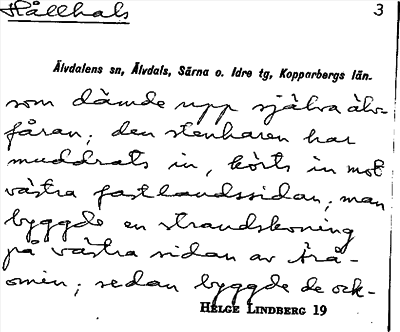 Hållhals
3
Älvdalens sn, Älvdals, Särna o. Idre tg, Kopparbergs län.
som dämde upp själva älv-
fåran; den stenharen har
muddrats in, körts in mot
västra fastlandssidan; man
byggde en strandskoning
på västra sidan av Trä-
omin; sedan byggde de ock-
HELGE LINDBERG 19